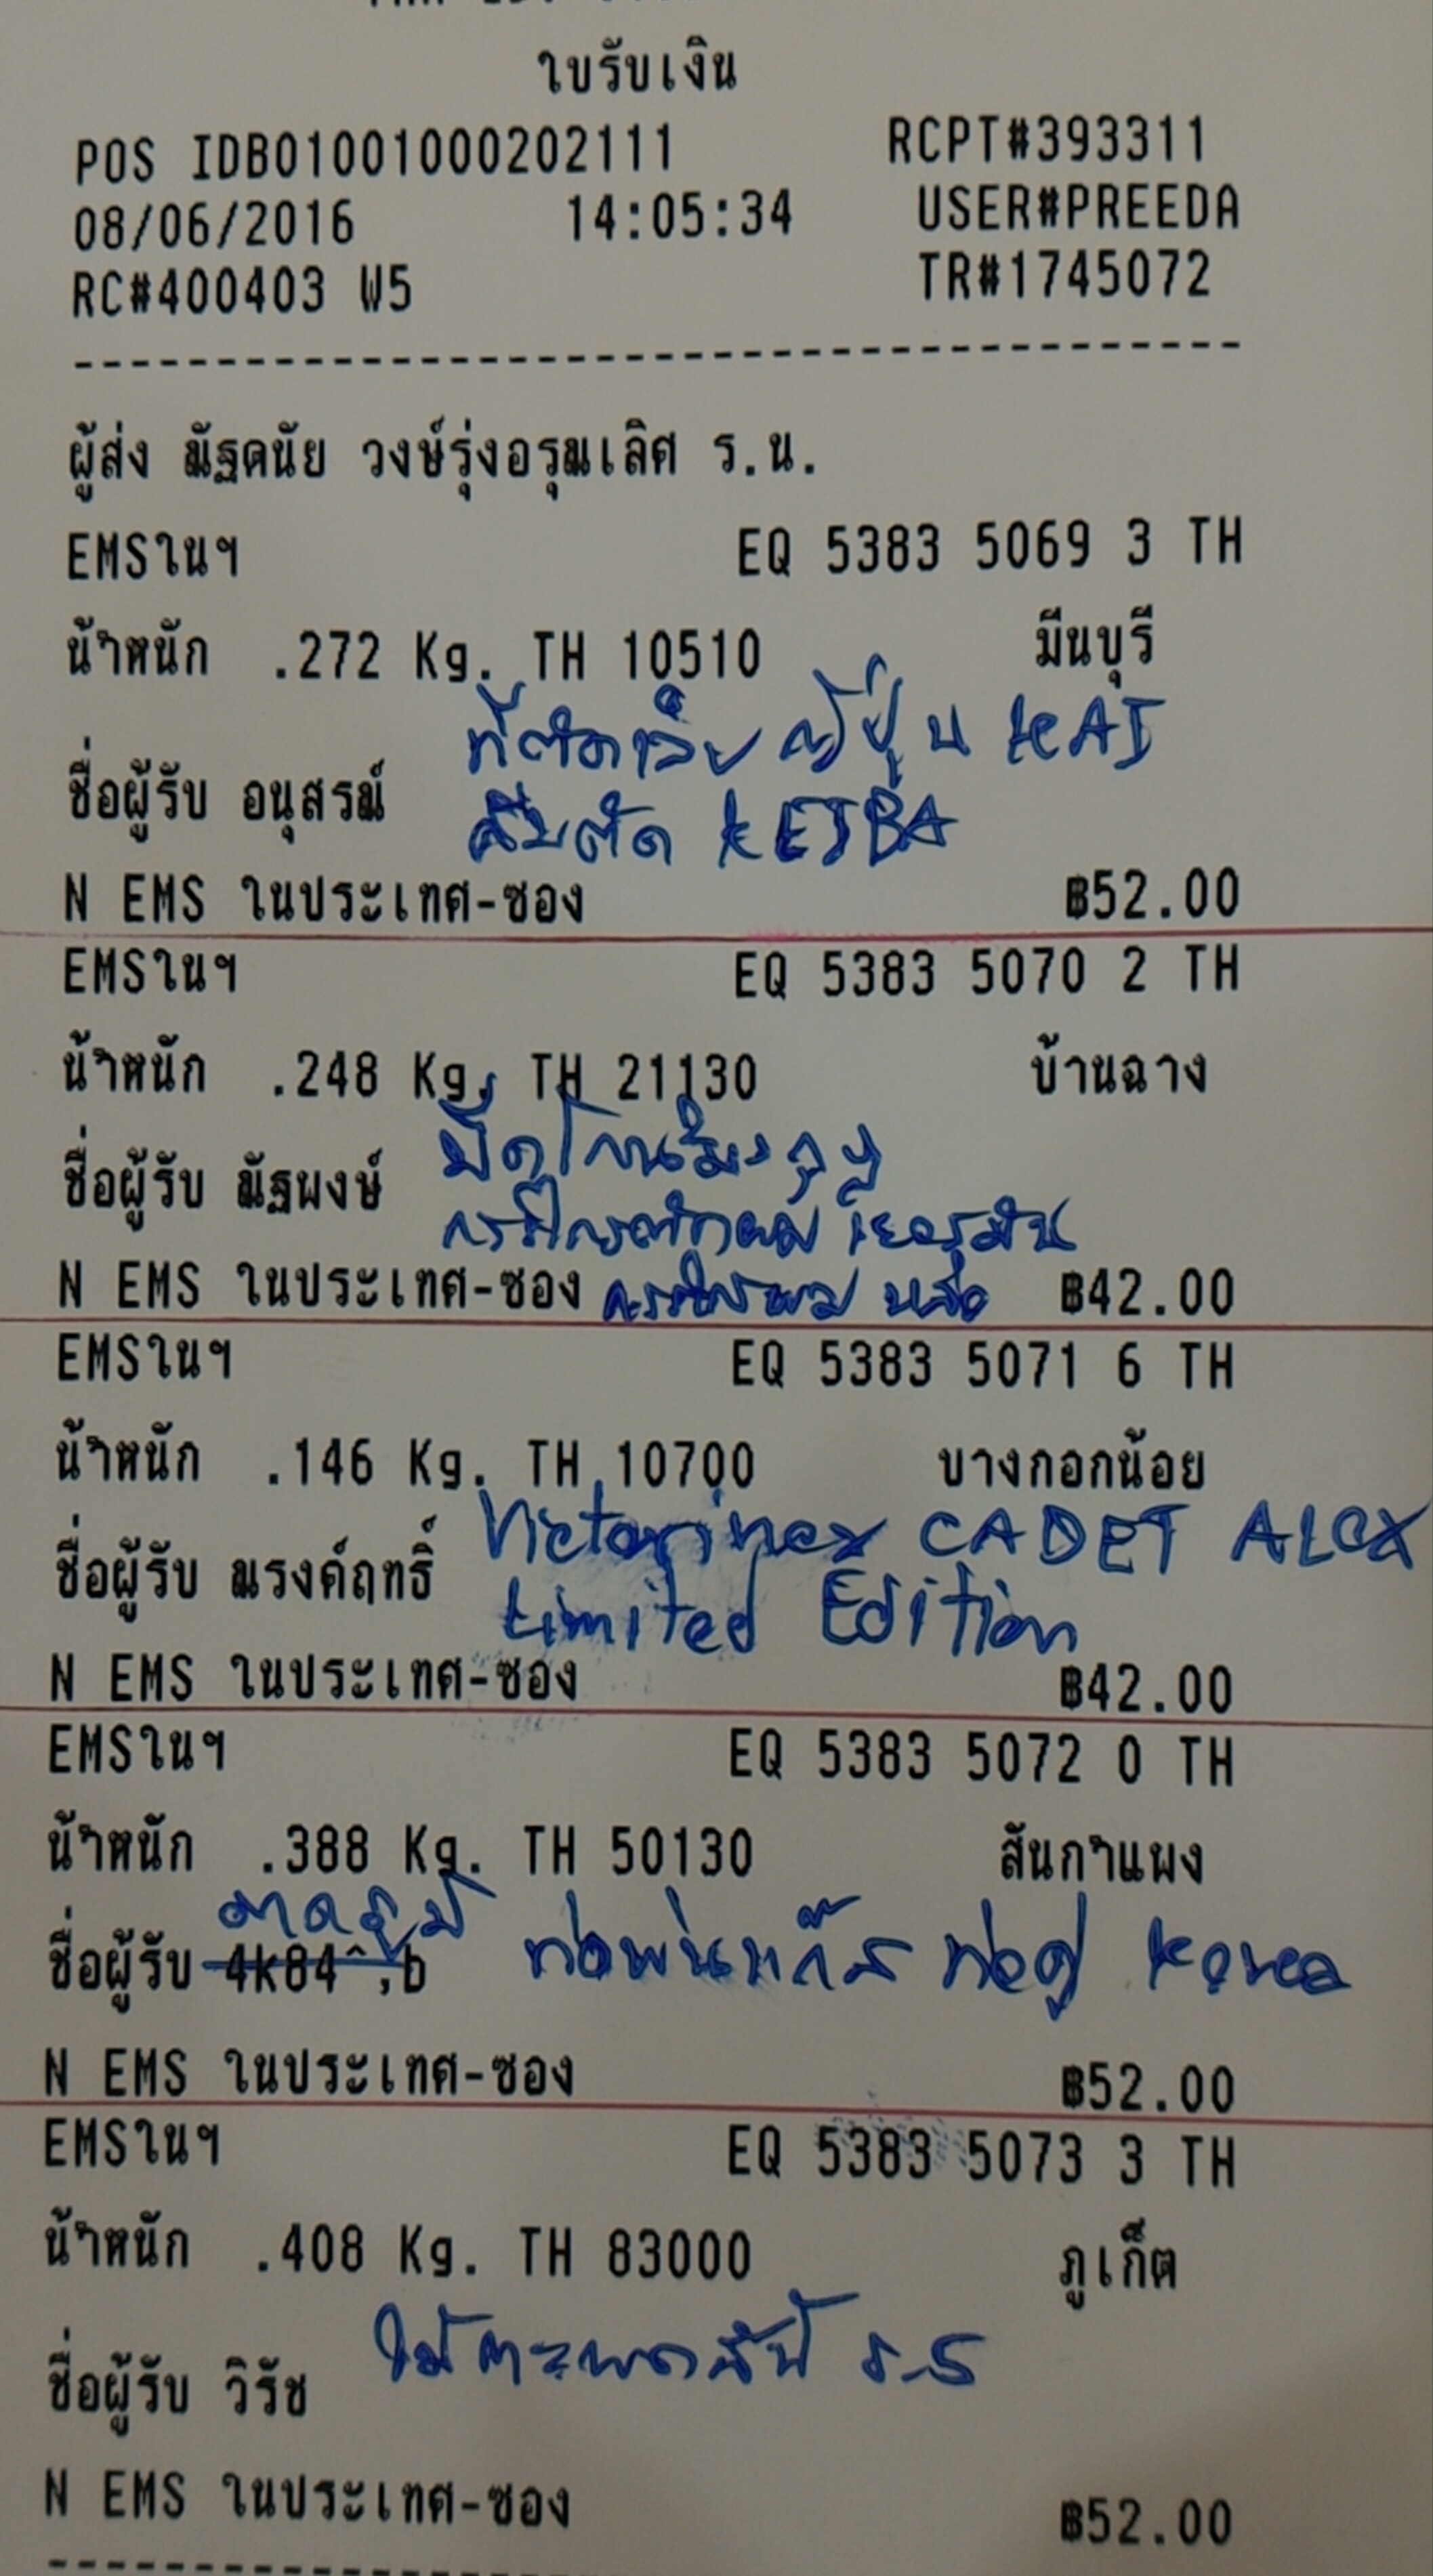 ใบรับเงิน
POS IDB01001000202111 RCPT#393311
08/06/2016 14:05:34 USER#PREEDA
RC#400403 W5 TR#1745072
----------------------------------------
ผู้ส่ง ณัฐดนัย วงษ์รุ่งอรุณเลิศ ร.น.
EMSในฯ EQ 5383 5069 3 TH
น้ำหนัก .272 Kg. TH 10510 มีนบุรี
ที่ตัดเล็บ ญี่ปุ่น KAI
ชื่อผู้รับ อนุสรณ์
คีบตัด KEIBA
N EMS ในประเทศ-ซอง ฿52.00
EMSในฯ EQ 5383 5070 2 TH
น้ำหนัก .248 Kg. TH 21130 บ้านฉาง
มีดโกน
ชื่อผู้รับ ณัฐพงษ์
กรรไกรตัดผม เยอรมัน
N EMS ในประเทศ-ซอง กรรไกร ฿42.00
EMSในฯ EQ 5383 5071 6 TH
น้ำหนัก .146 Kg. TH 10700 บางกอกน้อย
Victorinox CADET ALOX
ชื่อผู้รับ ณรงค์ฤทธิ์
Limited Edition
N EMS ในประเทศ-ซอง ฿42.00
EMSในฯ EQ 5383 5072 0 TH
น้ำหนัก .388 Kg. TH 50130 สันกำแพง
ชื่อผู้รับ 4k84^,b ท่อพ่นแก๊ส ท่อคู่ Korea
N EMS ในประเทศ-ซอง ฿52.00
EMSในฯ EQ 5383 5073 3 TH
น้ำหนัก .408 Kg. TH 83000 ภูเก็ต
ชื่อผู้รับ วิรัช
N EMS ในประเทศ-ซอง ฿52.00